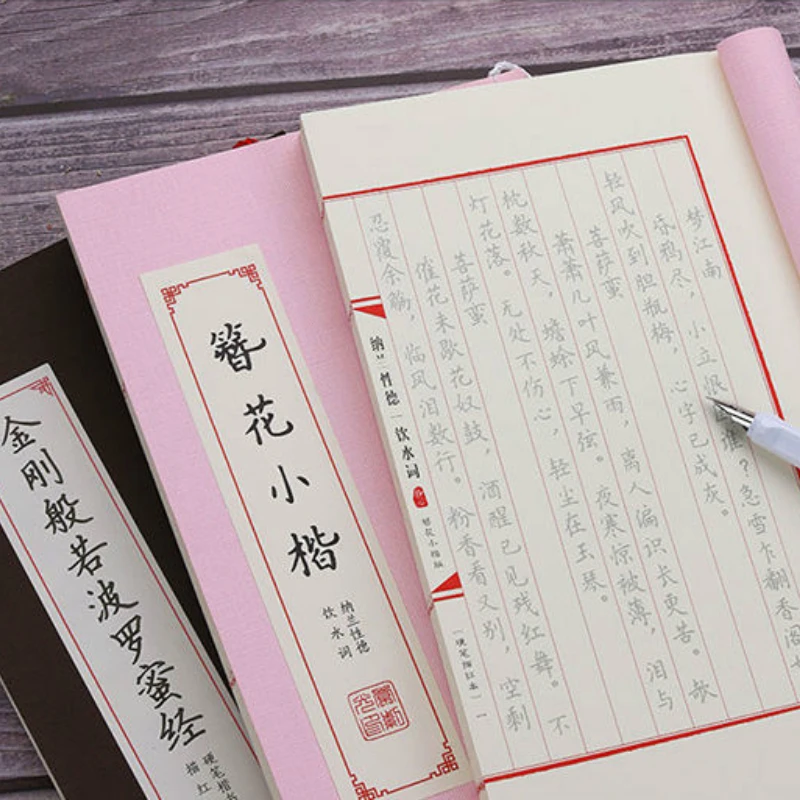 金刚般若波罗蜜经
硬笔楷书
描红
簪花小楷
纳兰性德
饮水词
梦江南
昏鸦尽，小立恨谁？急雪乍翻香阁
轻风吹到胆瓶梅，心字已成灰。
菩萨蛮
萧萧几叶风兼雨，离人偏识长更苦。欹
枕数秋天，蟾蜍下早弦。夜寒惊被薄，泪与
灯花落。无处不伤心，轻尘在玉琴。
菩萨蛮
催花未歇花奴鼓，酒醒已见残红舞。不
忍覆余觞，临风泪数行。粉香看又别，空剩
纳兰性德｜饮水词
簪花小楷版
〔硬笔描红本〕